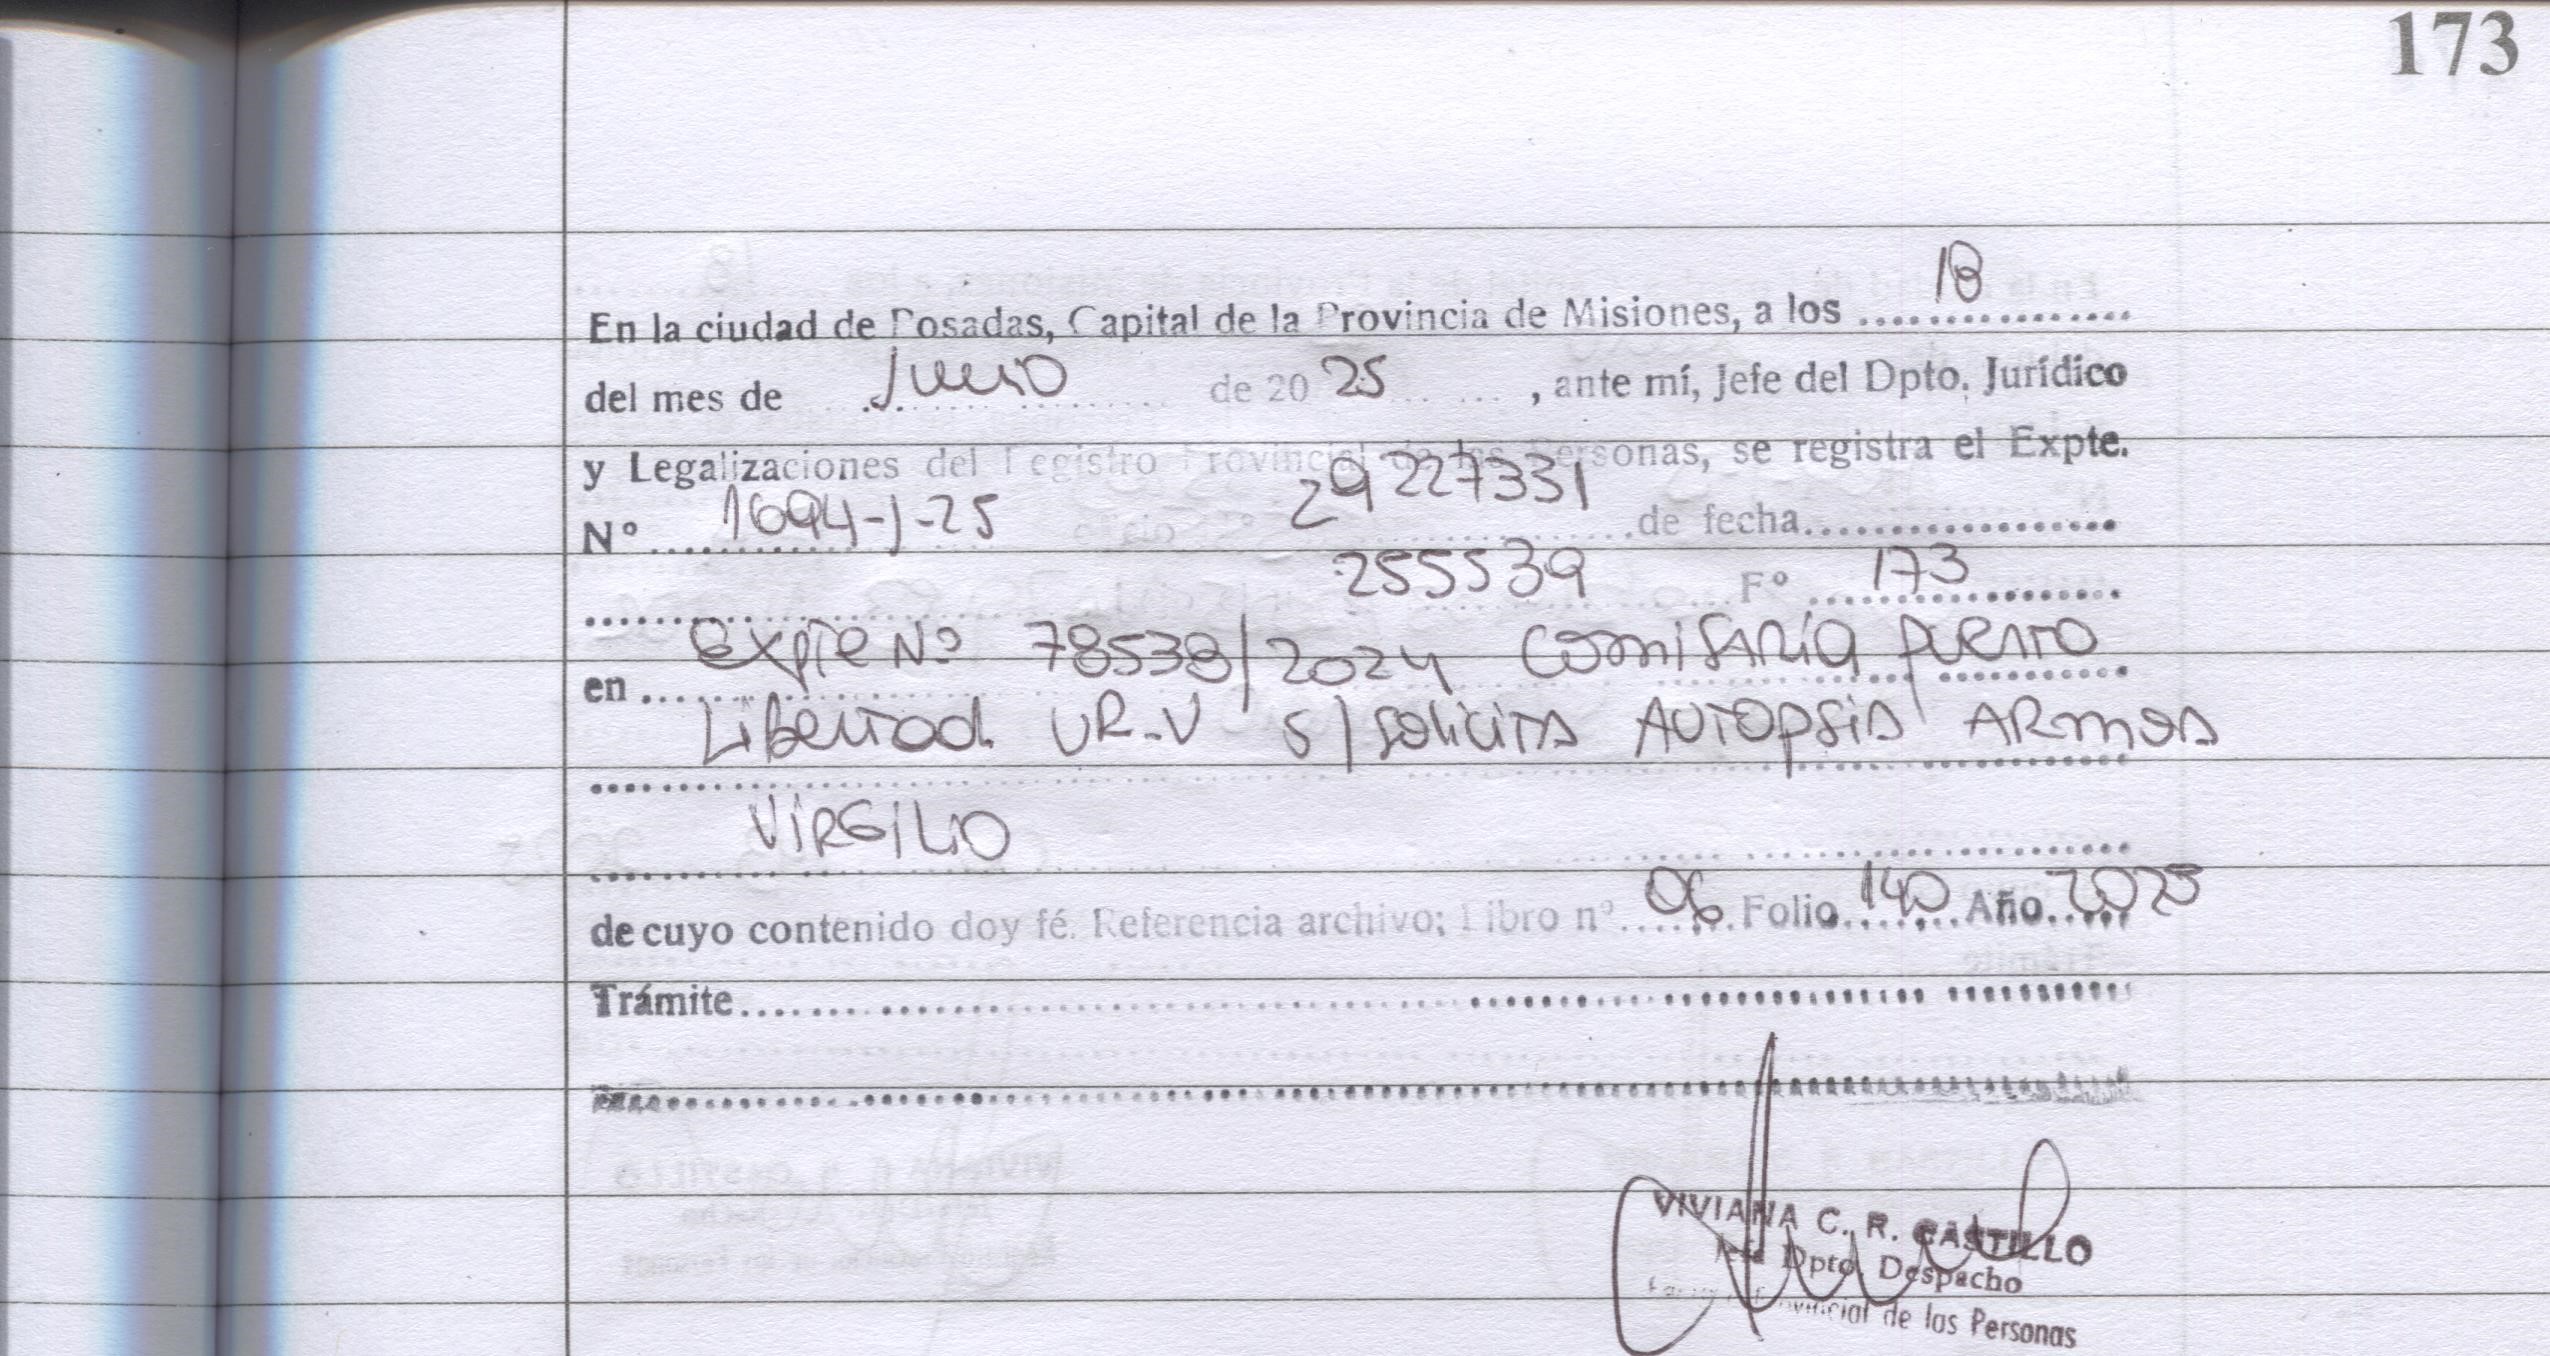 173
En la ciudad de Posadas, Capital de la Provincia de Misiones, a los 18
del mes de Junio de 20 25 , ante mí, Jefe del Dpto. Jurídico
y Legalizaciones del Registro Provincial de las Personas, se registra el Expte.
Nº 1694-J-25 29227331 de fecha
255539 Fº 173
en Expte Nº 78538/2024 Comisaría Puerto
Libertad UR-V s/ solicita AUTOPSIA
VIRGILIO
de cuyo contenido doy fé. Referencia archivo; Libro nº 06 Folio 140 Año 2025
Trámite
VIVIANA C. R. CASTILLO
Jefe Dpto. Despacho
Provincial de las Personas